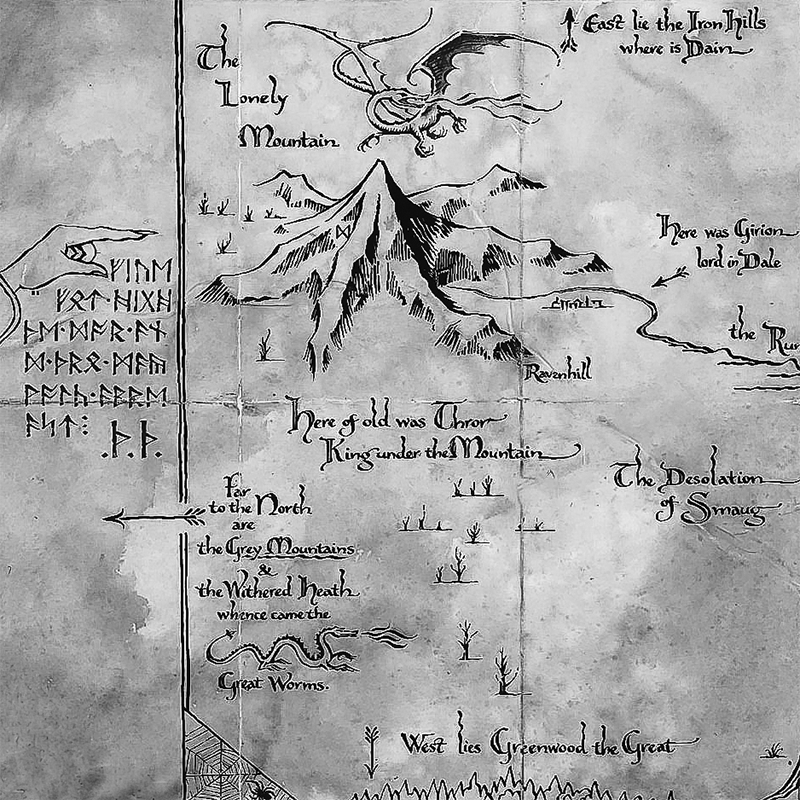 The
Lonely
Mountain
East lie the Iron Hills
where is Dain
Here was Girion
lord in Dale
the Run
Ravenhill
ᚠᛁᚢᛖ
ᚠᚩᛏ·ᚻᛁᚷᚻ
ᚦᛖ·ᛞᚩᚱ·ᚪᚾ
ᛞ·ᚦᚱᛟ·ᛗᚪᚣ
ᚹᚪᛚᚳ·ᚪᛒᚱᛖ
ᚪᛋᛏ⁝
.ᚦ.ᚦ.
ᛞ
Here of old was Thror
King under the Mountain
The Desolation
of Smaug
Far
to the North
are
the Grey Mountains
&
the Withered Heath
whence came the
Great Worms.
West lies Greenwood the Great